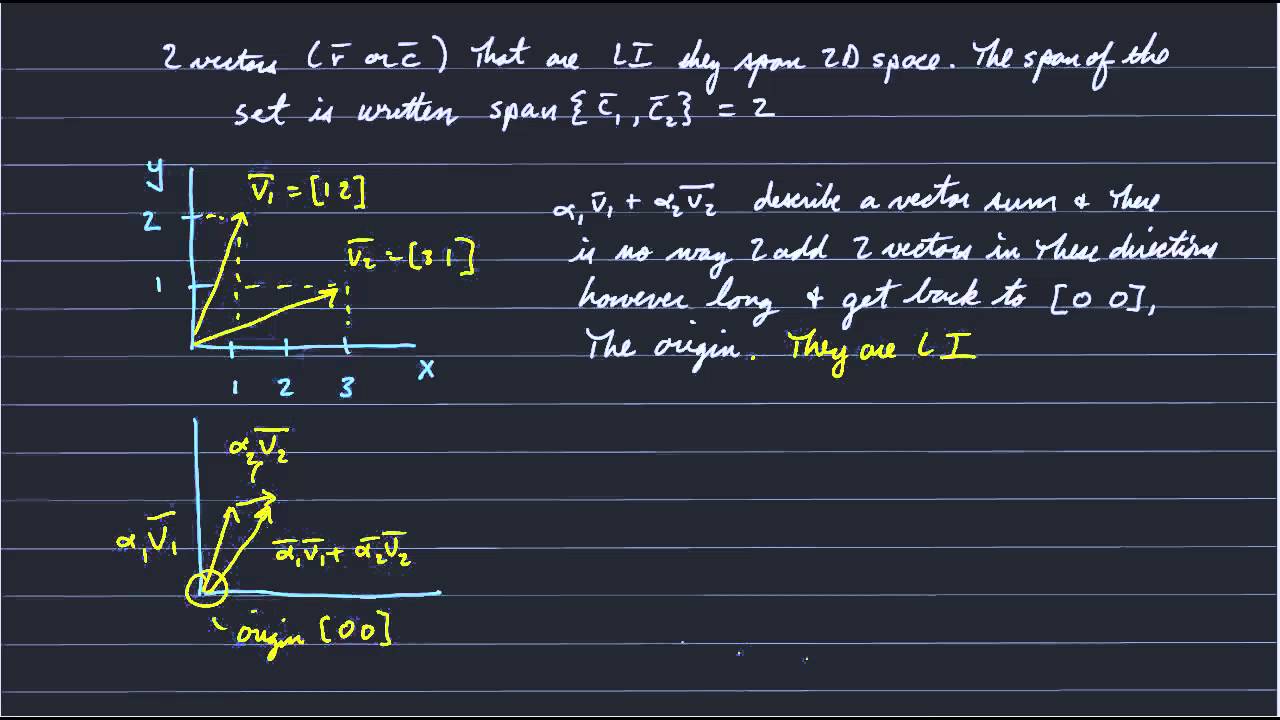 2 vectors (r̄ or c̄) that are LI they span 2D space. The span of the
set is written span{c̄₁, c̄₂} = 2
y
v̄₁ = [1 2]
2
v̄₂ = [3 1]
1
1 2 3
x
α₁v̄₁ + α₂v̄₂ describe a vector sum & there
is no way 2 add 2 vectors in these directions
however long & get back to [0 0],
the origin. They are LI
α₂v̄₂
α₁v̄₁
ᾱ₁v̄₁ + ᾱ₂v̄₂
origin [0 0]